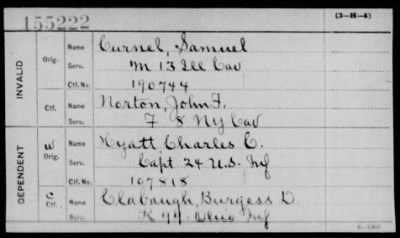 155222
(3-H-4)
INVALID
Orig.
Name Curnel, Samuel
Serv. M 13 Ill Cav
Ctf. No. 190744
Ctf. Name Norton, John F.
F 8 Ny Cav
DEPENDENT
W
Orig.
Name Hyatt, Charles C.
Serv. Capt 24 U.S. Inf
Ctf. No. 107818
C
Ctf. Name Clabaugh, Burgess D.
Serv. K 44 Ohio Inf